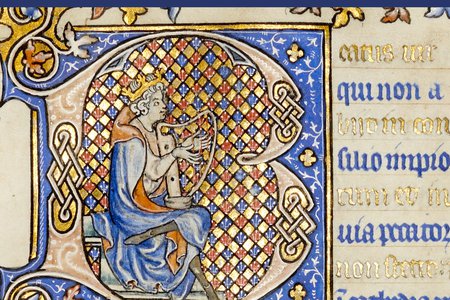 Beatus uir
qui non a
biit in con
silio impio
rum et in
uia peccator
non stetit